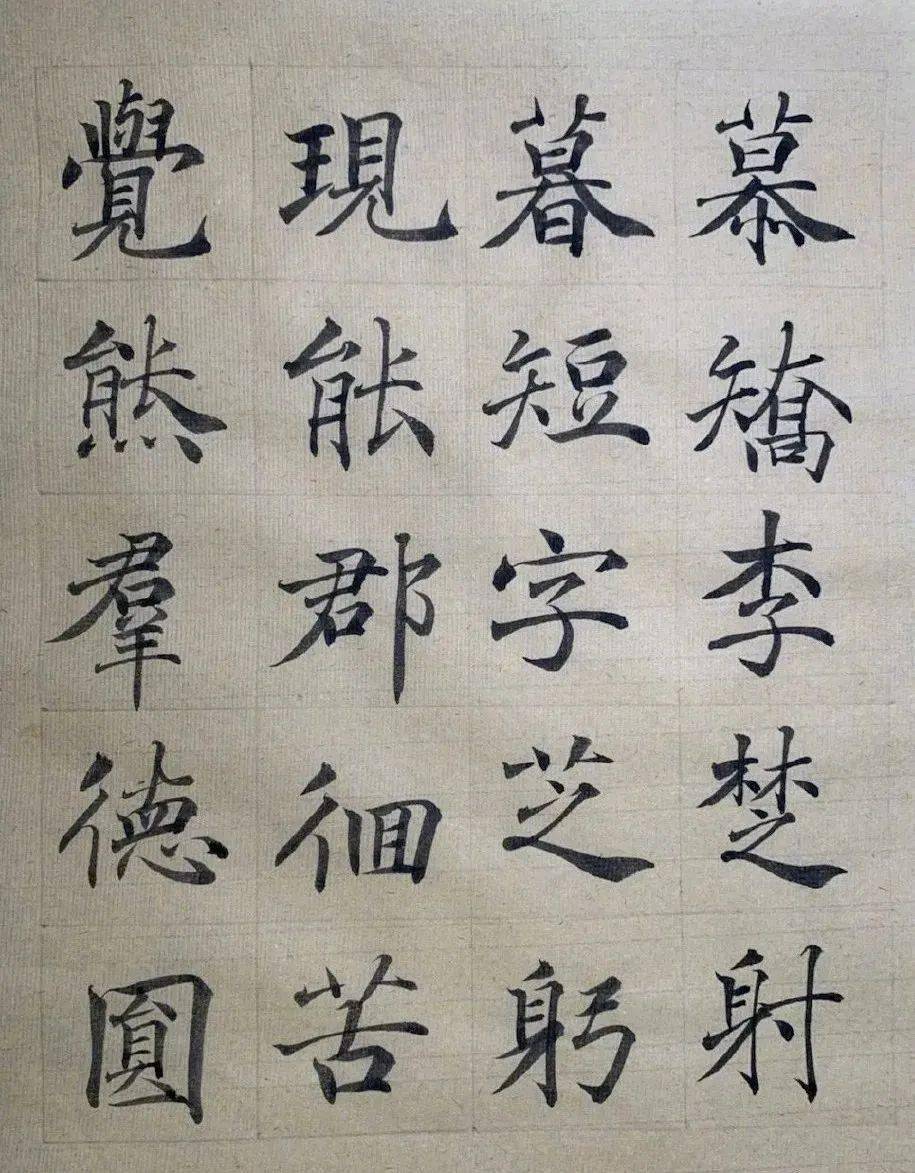 慕矯李楚射
暮短字芝躬
現能郡徊苦
覺熊羣德圓